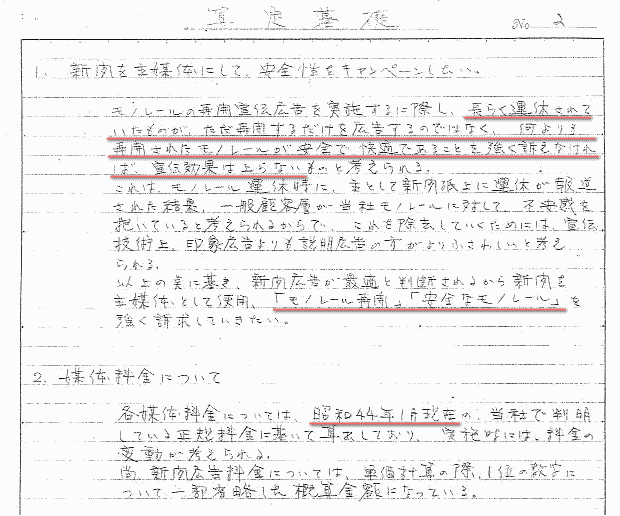 算定基礎
No. 2
1. 新聞を主媒体にして、安全性をキャンペーンしたい。
モノレールの再開宣伝広告を実施するに際し、長らく運休されて
いたものが、ただ再開するだけを広告するのではなく、何よりも
再開されたモノレールが安全で快適であることを強く訴えなけれ
ば、宣伝効果は上らないものと考えられる。
これは、モノレール運休時に、主として新聞紙上に運休が報道
された結果、一般顧客層が当社モノレールに対して、不安感を
抱いていると考えられるからで、これを除去していくためには、宣伝
技術上、印象広告よりも説明広告の方がよりふさわしいと考え
られる。
以上の実に基き、新聞広告が最適と判断されるから新聞を
主媒体として使用、「モノレール再開」「安全なモノレール」を
強く訴求していきたい。
2. 媒体料金について
各媒体料金については、昭和44年1月現在の、当社で判明
している正規料金に基いて算出しており、実施時には、料金の
変動が考えられる。
尚、新聞広告料金については、単価計算の際、1位の数字に
ついて一部省略した概算金額になっている。